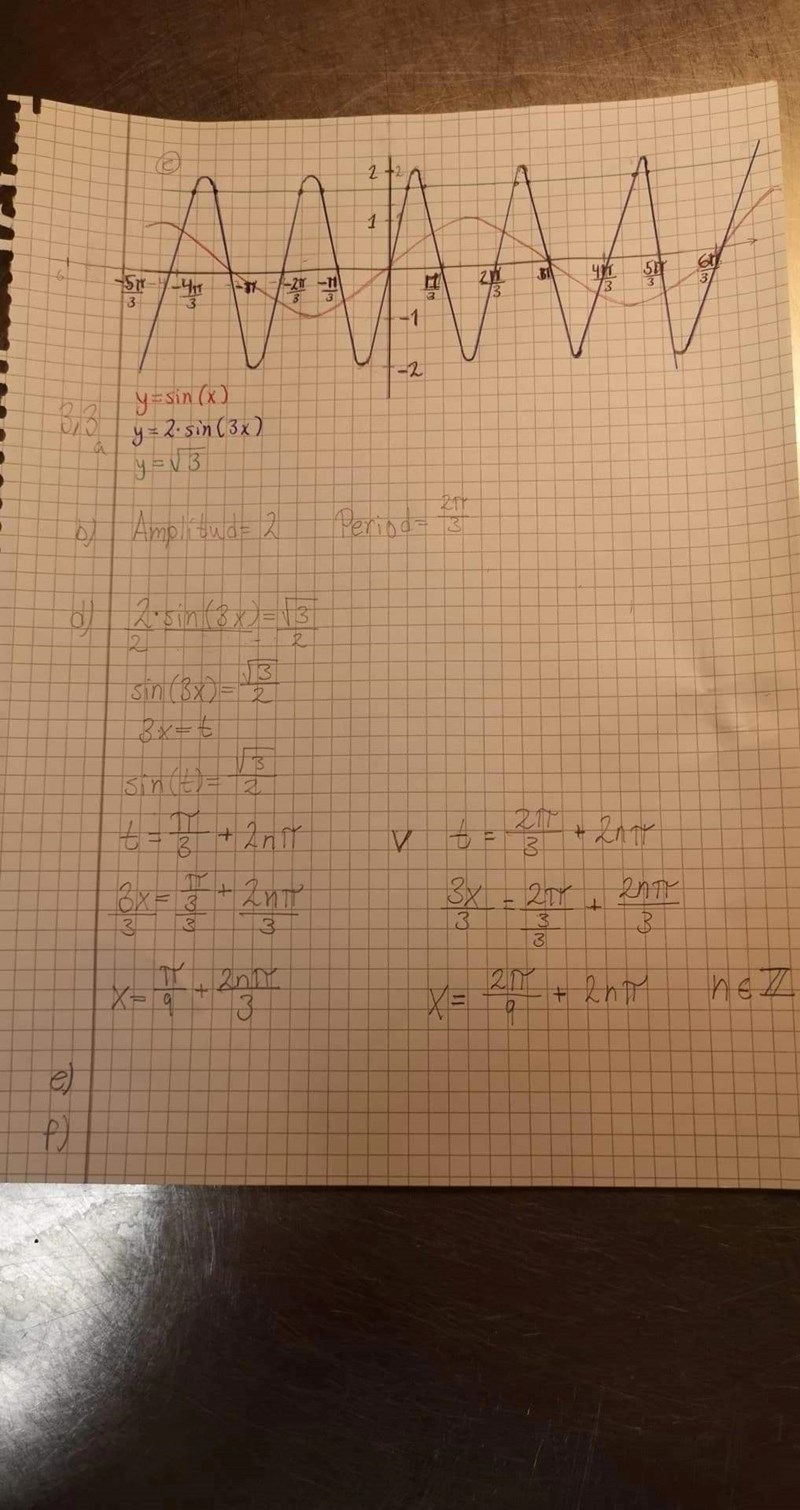 e
2 2
1 1
-5π/3 -4π/3 -π -2π/3 -π/3 π/3 2π/3 π 4π/3 5π/3 6π/3
-1
-2
y=sin(x)
3,3 a y=2·sin(3x)
y=√3
b) Amplitud=2 Period=2π/3
d) 2·sin(3x)/2=√3/2
sin(3x)=√3/2
3x=t
sin(t)=√3/2
t=π/3+2nπ V t=2π/3+2nπ
3x/3=π/3/3+2nπ/3 3x/3=2π/3/3+2nπ/3
x=π/9+2nπ/3 x=2π/9+2nπ n∈ℤ
e)
f)